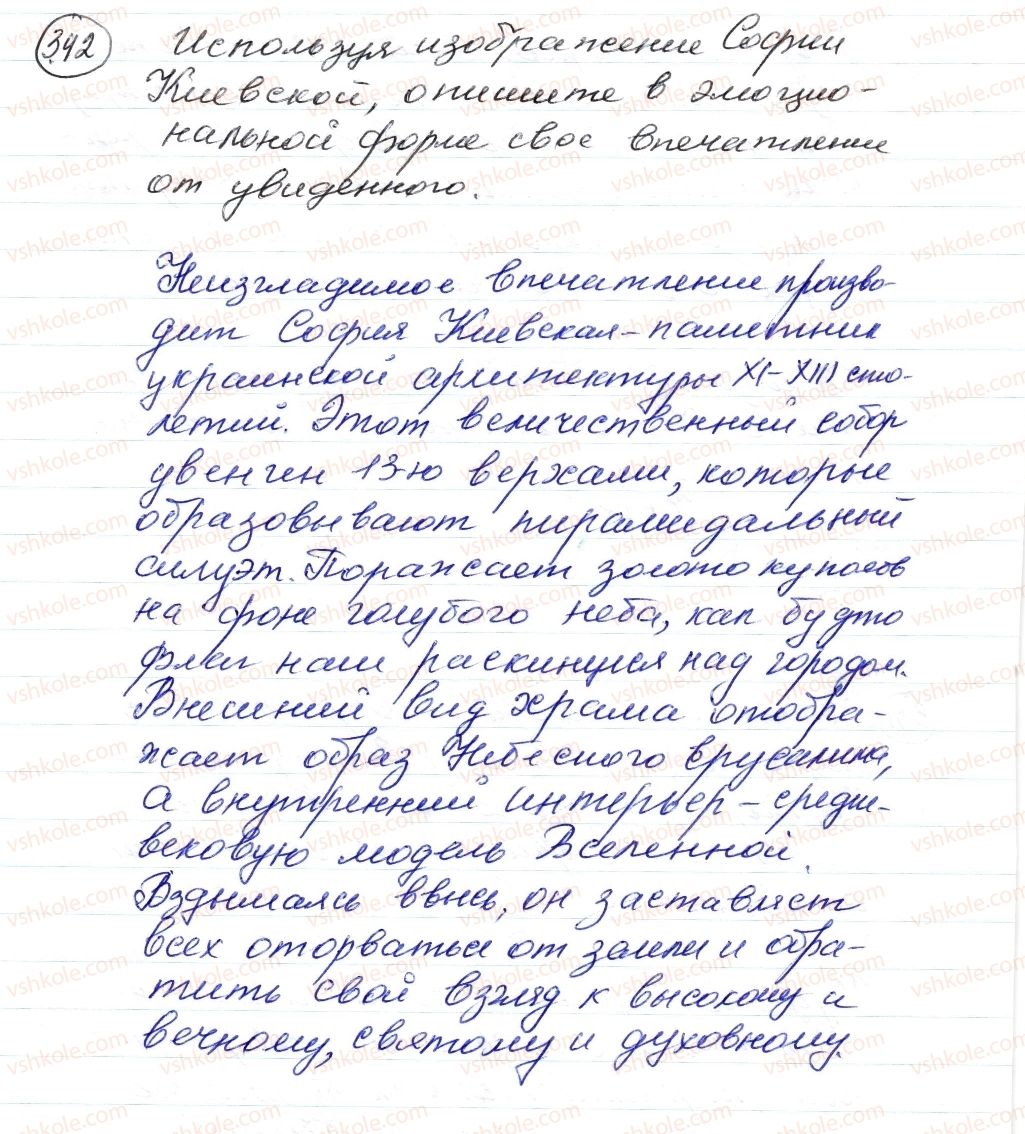 342 Используя изображение Софии
Киевской, опишите в эмоцио-
нальной форме свое впечатление
от увиденного.
Неизгладимое впечатление произво-
дит София Киевская - памятник
украинской архитектуры XI-XIII сто-
летий. Этот величественный собор
увенчен 13-ю верхами, которые
образовывают пирамидальный
силуэт. Поражает золото куполов
на фоне голубого неба, как будто
флаг наш раскинулся над городом.
Внешний вид храма отобра-
жает образ Небесного Ерусалима,
а внутренний интерьер - средне-
вековую модель Вселенной.
Вздымаясь ввысь, он заставляет
всех оторваться от земли и обра-
тить свой взгляд к высокому и
вечному, святому и духовному.